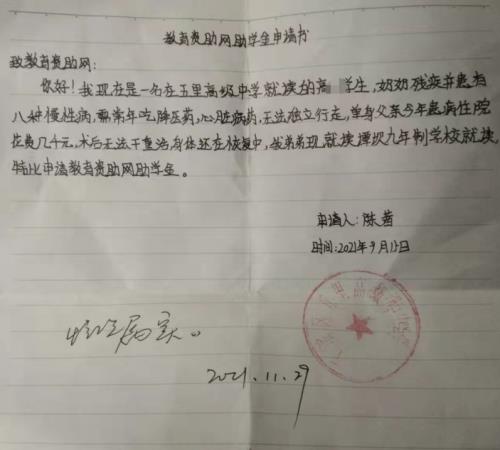 教育资助网助学金申请书
致教育资助网：
你好！我现在是一名在五里高级中学就读的高 学生，奶奶残疾并患有
八种慢性病，需常年吃降压药，心脏病药，无法独立行走，单身父亲今年患病住院
花费几千元。术后无法干重活，身体还在恢复中，我弟弟现就读潭坎九年制学校就读，
特此申请教育资助网助学金。
申请人：陈茜
时间：2021年9月15日
情况属实。
2021.11.29